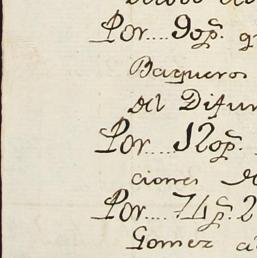 Por.... 90p.s
Baqueros
del Difun
Por.... 120p.s
ciones de
Por.... 74p.s 2
Gomez